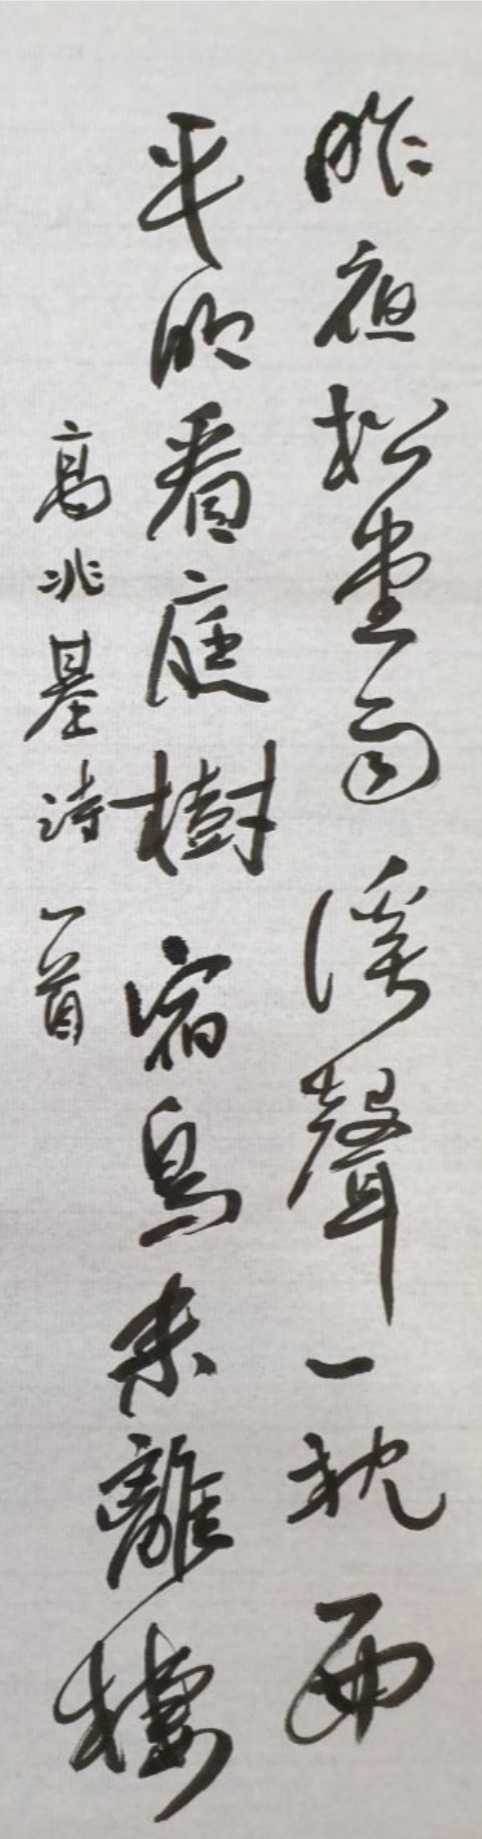 昨夜松堂雨溪聲一枕西
平明看庭樹宿鳥未離棲
高兆基詩一首